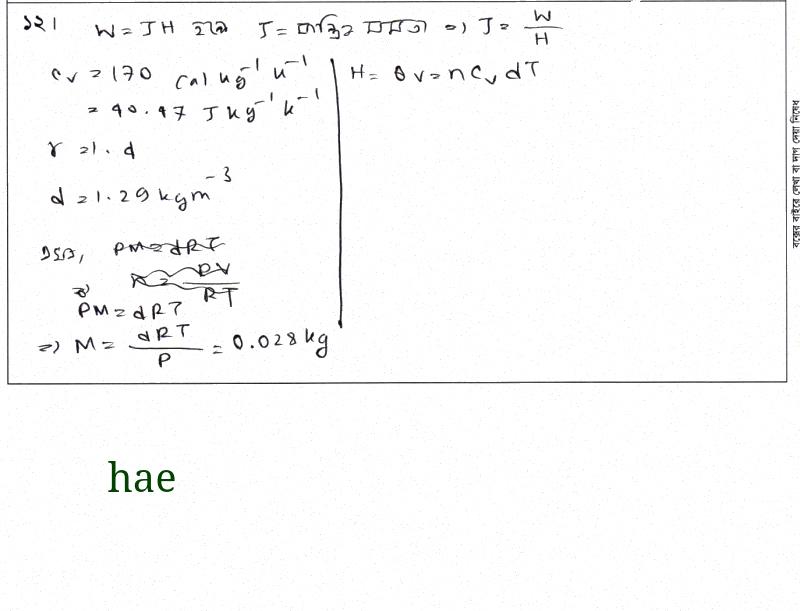 ১২। W = JH হলে J = যান্ত্রিক সমতা ⇒ J = W/H
Cv = 170 Cal kg⁻¹ k⁻¹
= 40.47 J kg⁻¹ k⁻¹
γ = 1.4
d = 1.29 kgm⁻³
PM = dRT
n = PV/RT
PM = dRT
⇒ M = dRT/P = 0.028 kg
H = Qv = nCv dT
বক্সের বাইরে লেখা বা দাগ দেয়া নিষেধ
hae